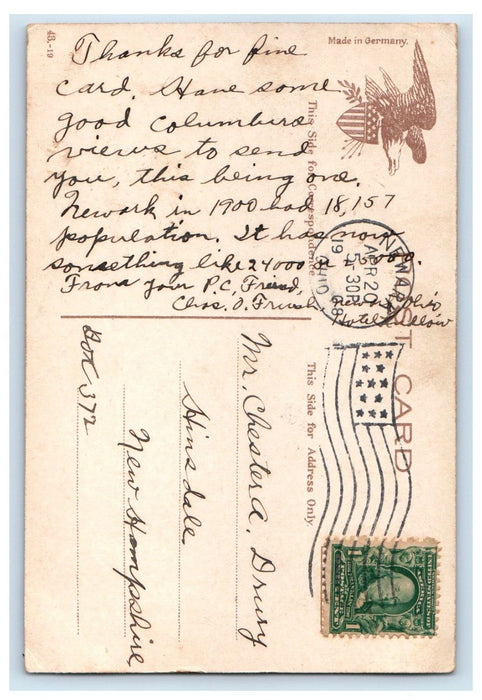 48.-19
Made in Germany.
Thanks for fine
card. Have some
good Columbus
views to send
you, this being one.
Newark in 1900 had 18,157
population. It has now
something like 24000 or 25000.
From your P.C. Friend,
Chas. O. Newark, Ohio
Hotel
This Side for Correspondence
POST CARD
NEWARK
APR 20
5-30P
19 08
OHIO
This Side for Address Only.
Mr. Chester A. Drury
Hinsdale
New Hampshire
Box 372